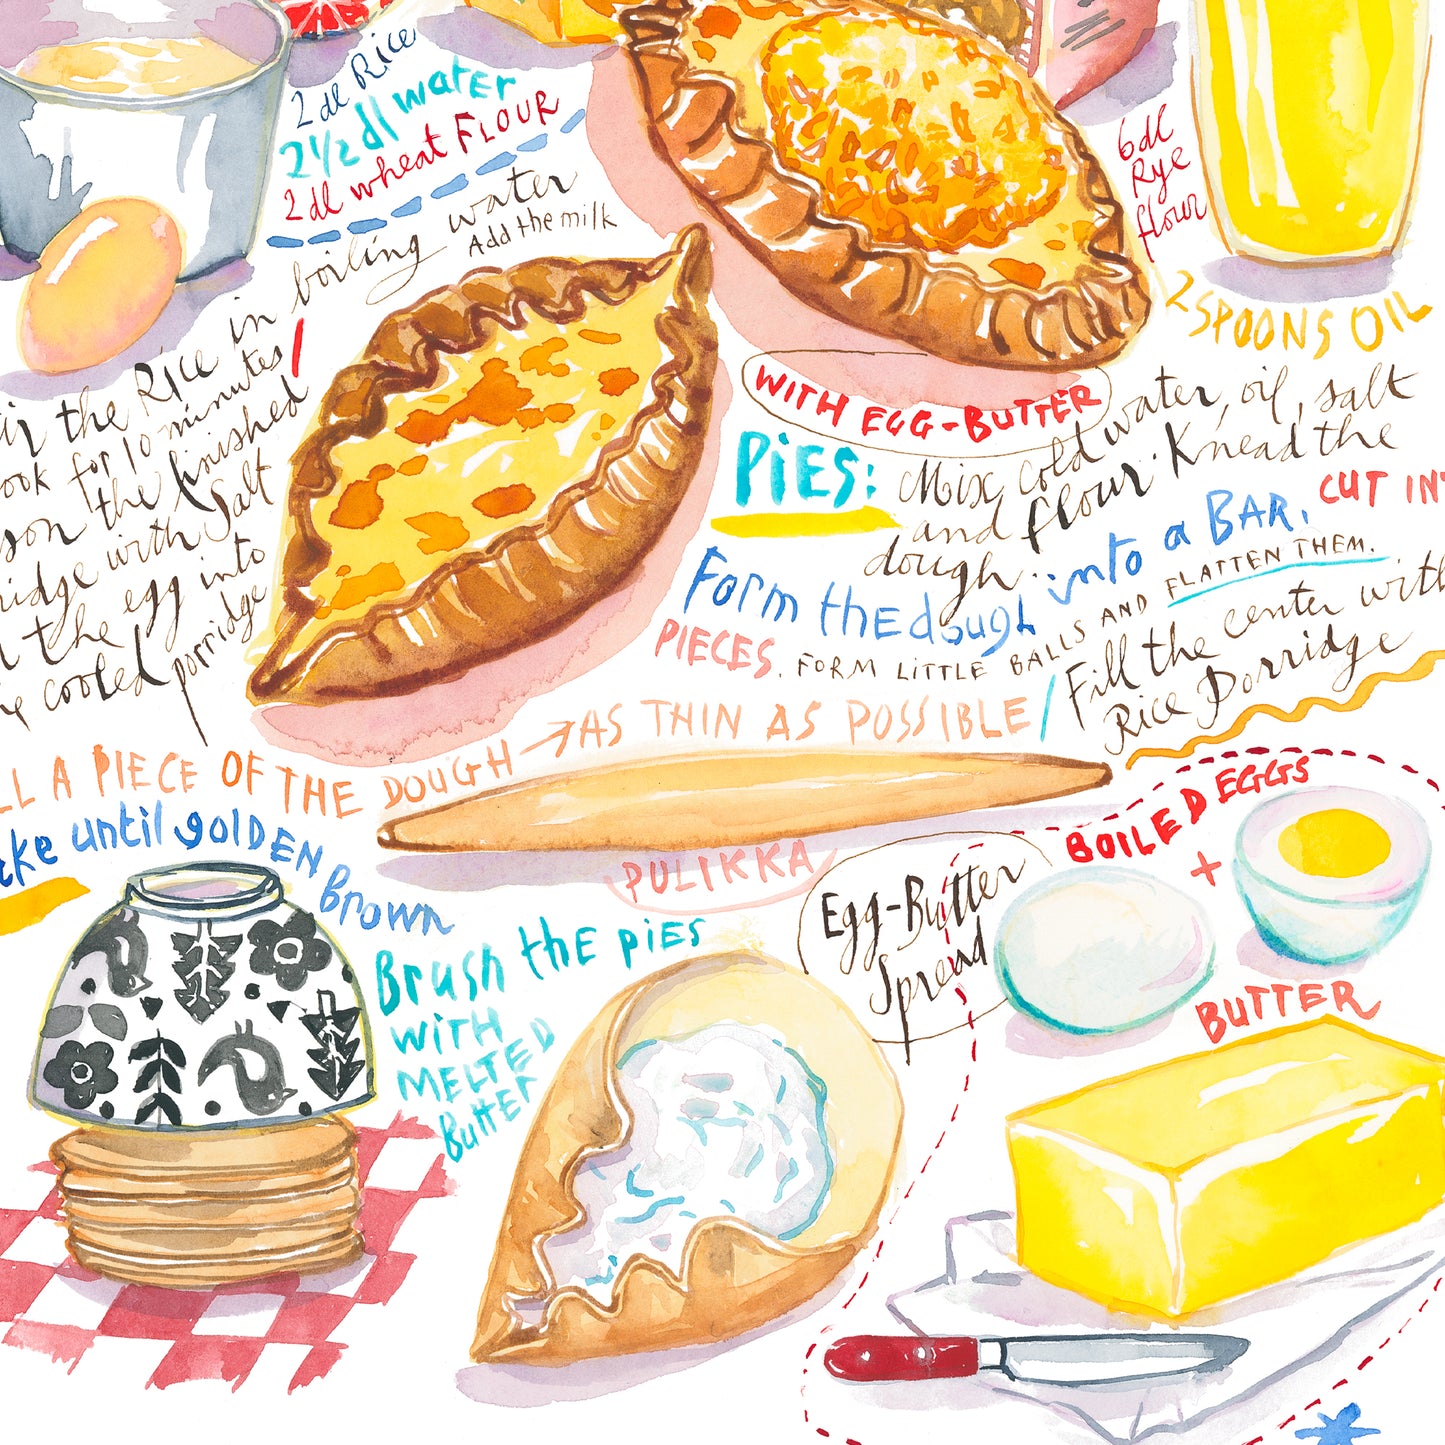 2 dl Rice
2 1/2 dl water
2 dl wheat FLOUR
boiling water
Add the milk
the Rice in
for 10 minutes
the finished
with Salt
the egg into
cooled porridge
6 dl
Rye
flour
2 SPOONS OIL
WITH EGG-BUTTER
PiES: Mix cold water, oil, salt
and flour. Knead the
dough.
Form the dough into a BAR, CUT IN
PIECES. FORM LITTLE BALLS AND FLATTEN THEM.
Fill the center with
Rice Porridge
A PIECE OF THE DOUGH → AS THIN AS POSSIBLE
until golDEN
Brown
PULIKKA
Brush the pies
WiTH
MELTED
Butter
Egg-Butter
Spread
BOILED EGGS
+
BUTTER